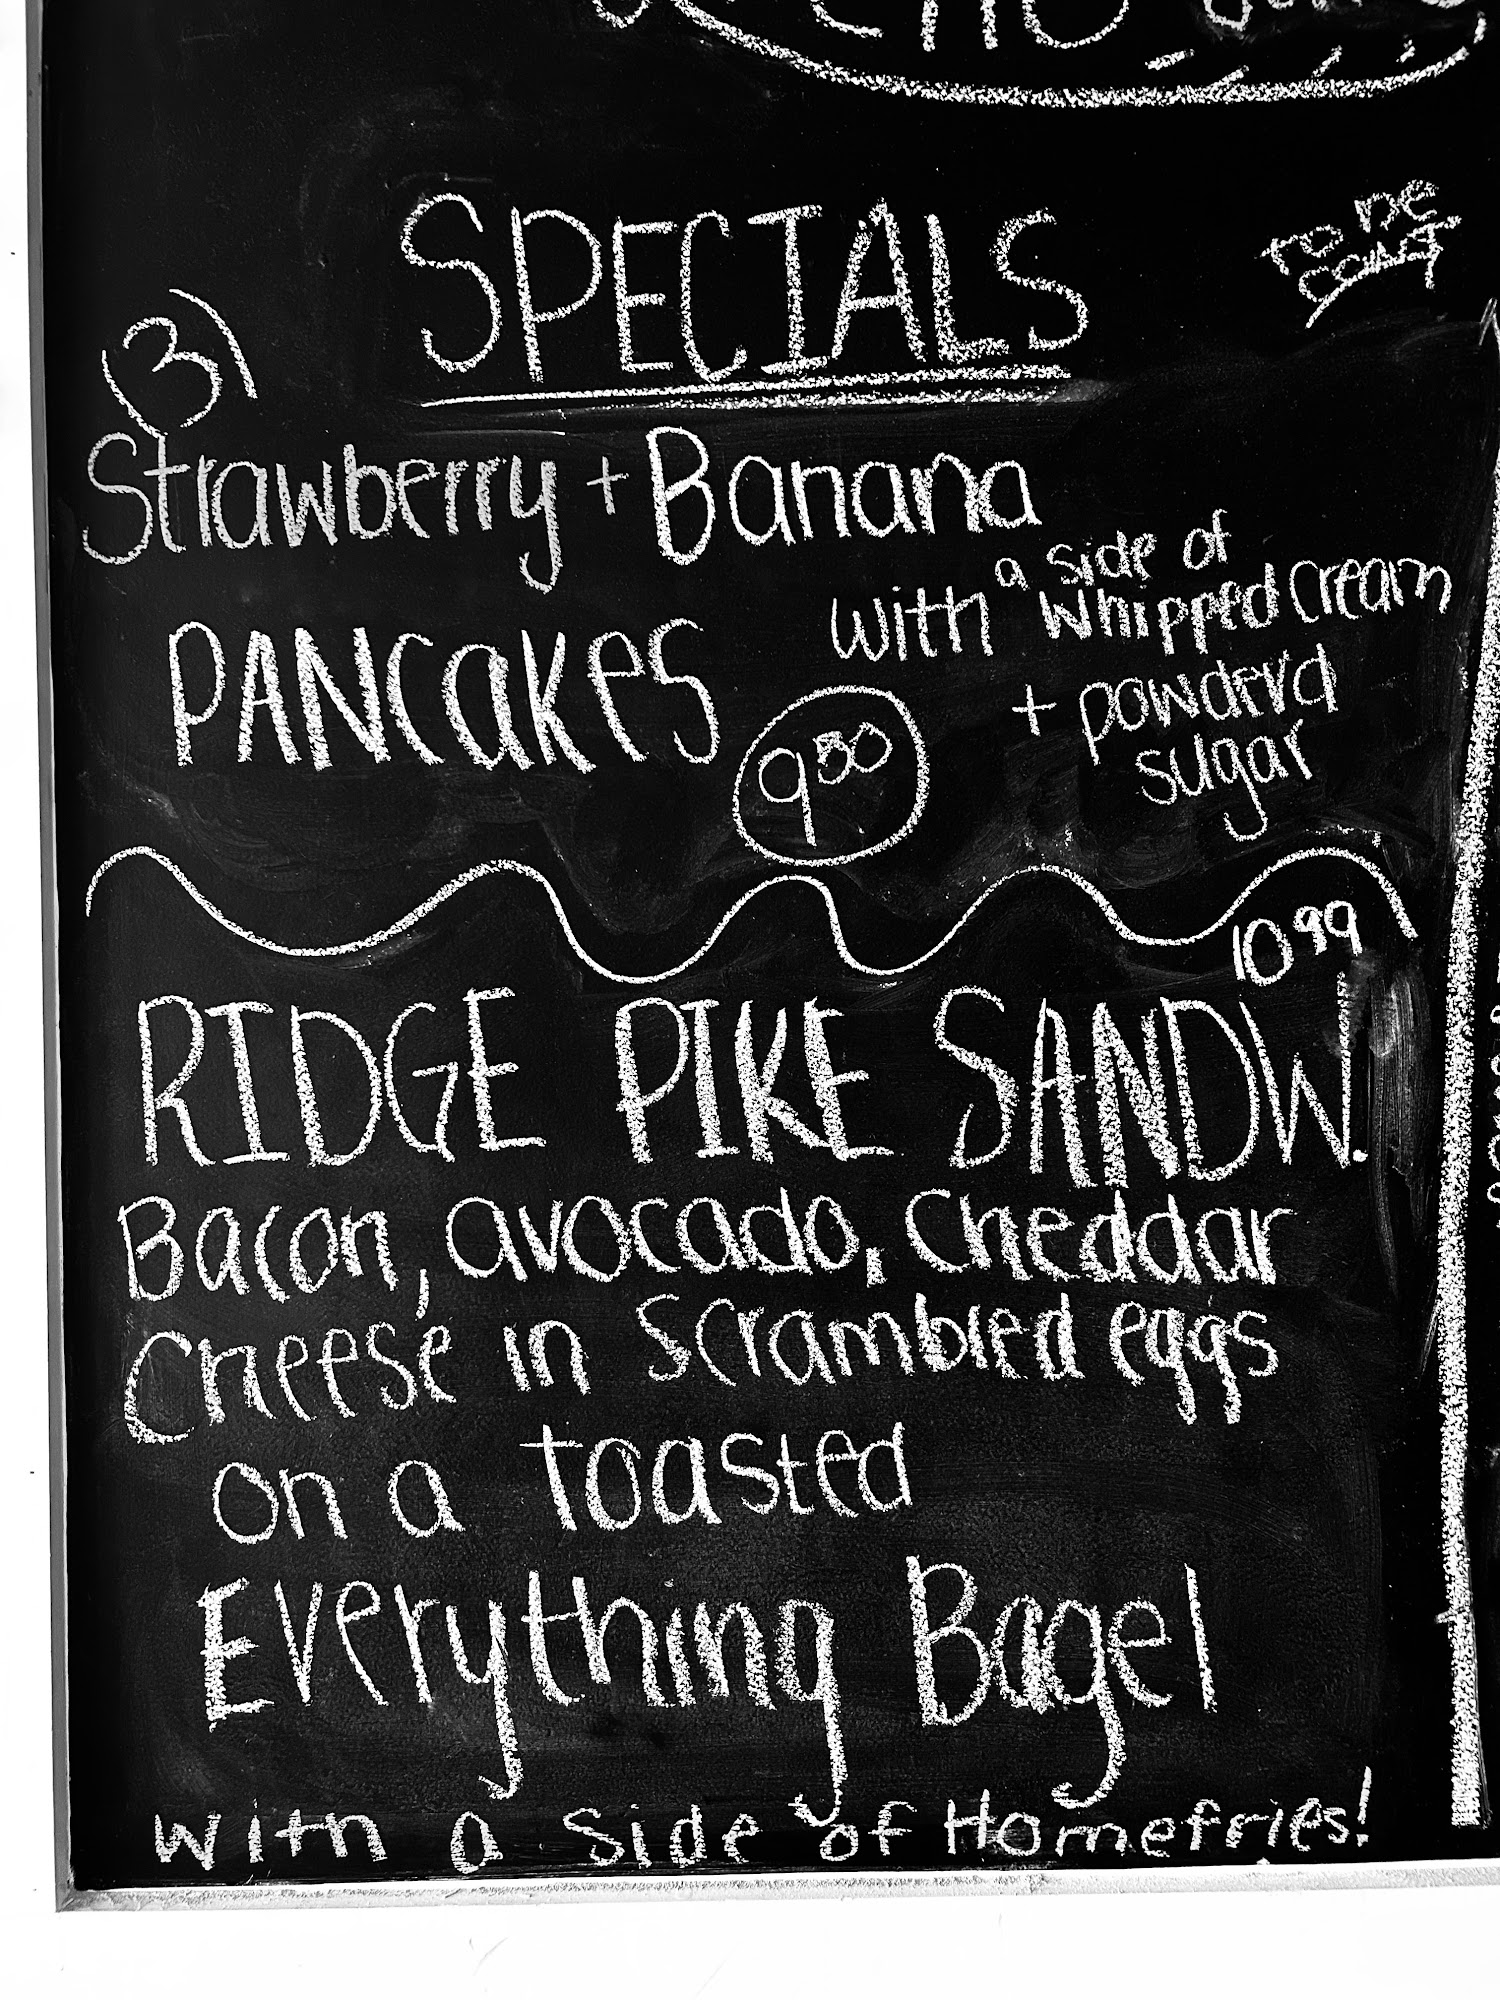 SPECIALS
TO BE
(3)
Strawberry + Banana
PANCakes
with a side of
whipped cream
+ powderd
sugar
9.50
10.99
RIDGE PIKE SANDW.
Bacon, avocado, cheddar
Cheese in Scrambled eggs
on a toasted
Everything Bagel
with a side of Homefries!